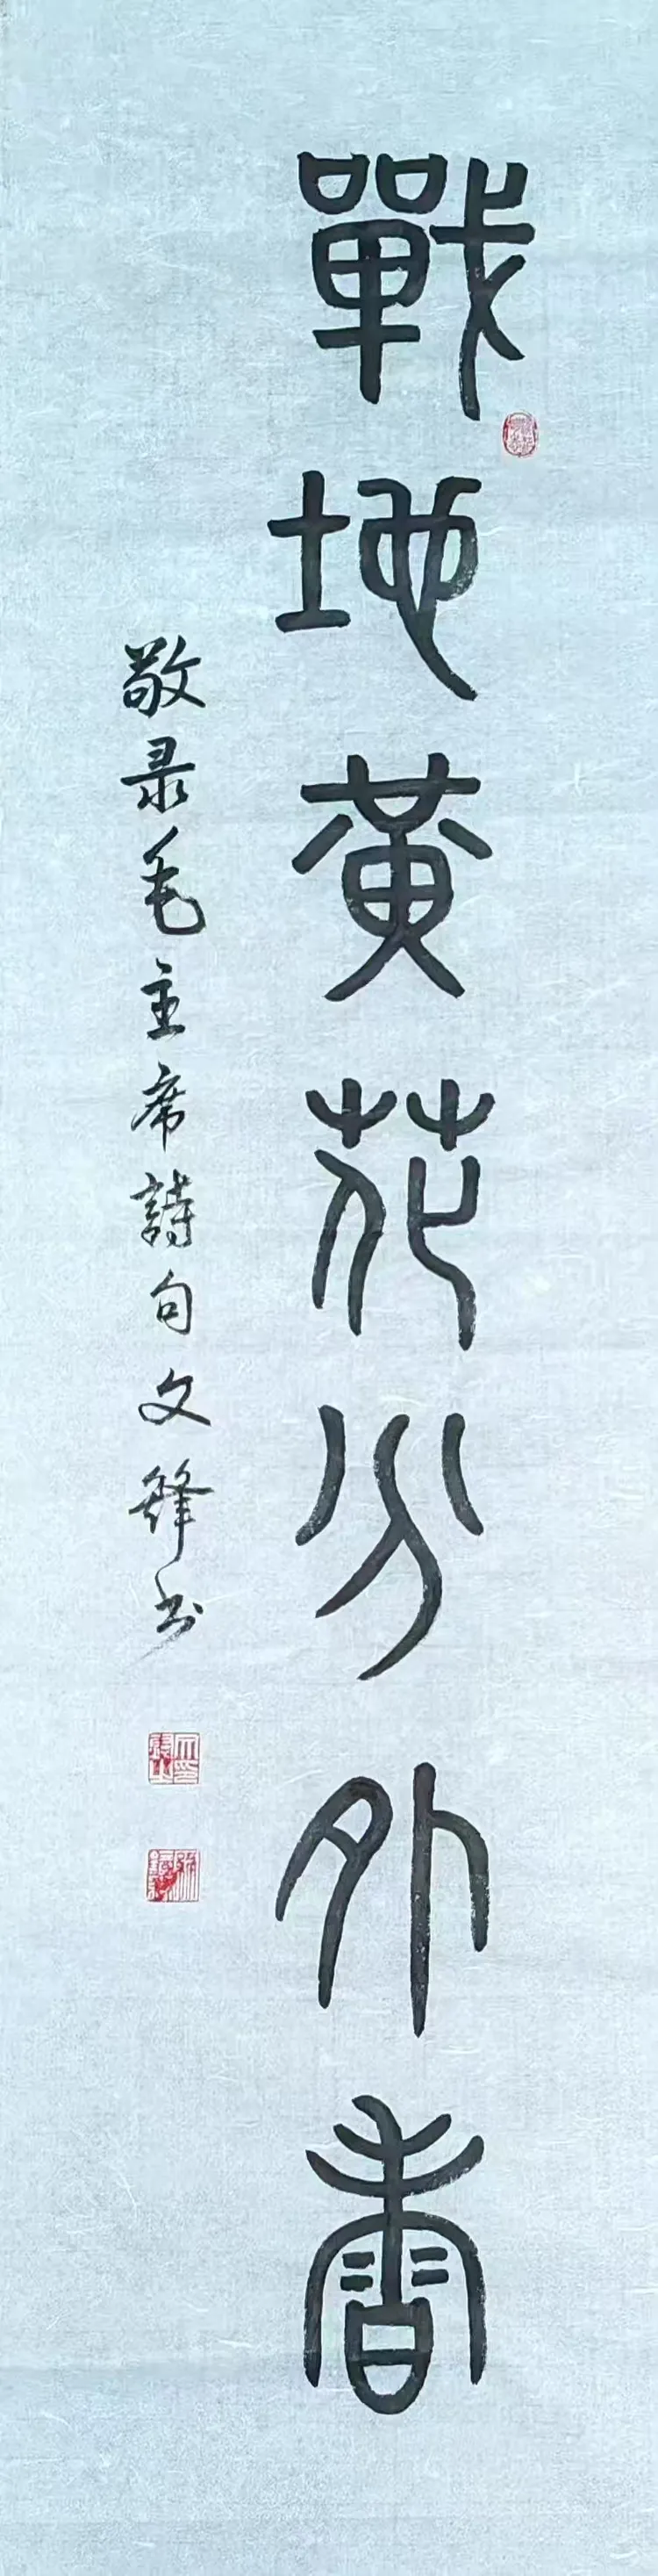 戰地黃花分外香
敬录毛主席詩句文鋒书